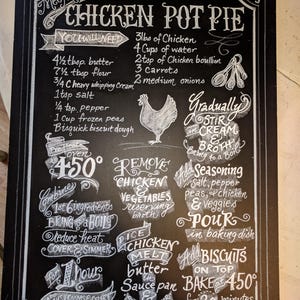 CHICKEN POT PIE
YOU WILL NEED
3lbs of Chicken
4 Cups of water
2tsp of Chicken bouillon
5 Carrots
2 medium onions
4½ tbsp butter
7½ tbsp flour
¾ C heavy whipping Cream
1tsp salt
¼ tsp. pepper
1 Cup frozen peas
Bisquick biscuit dough
450°
Combine
1st 6 Ingredients
BRING to a BOIL
Reduce heat
COVER & SIMMER
1 hour
REMOVE
CHICKEN
VEGETABLES
reserving
broth
DICE
CHICKEN
MELT
butter
in a
Sauce pan
Gradually
STIR
in
CREAM
&
BROTH
bring to a Boil
Add Seasoning
salt, pepper
peas, chicken
& veggies
POUR
in baking dish
Add BISCUITS
ON TOP
BAKE at 450°
minutes